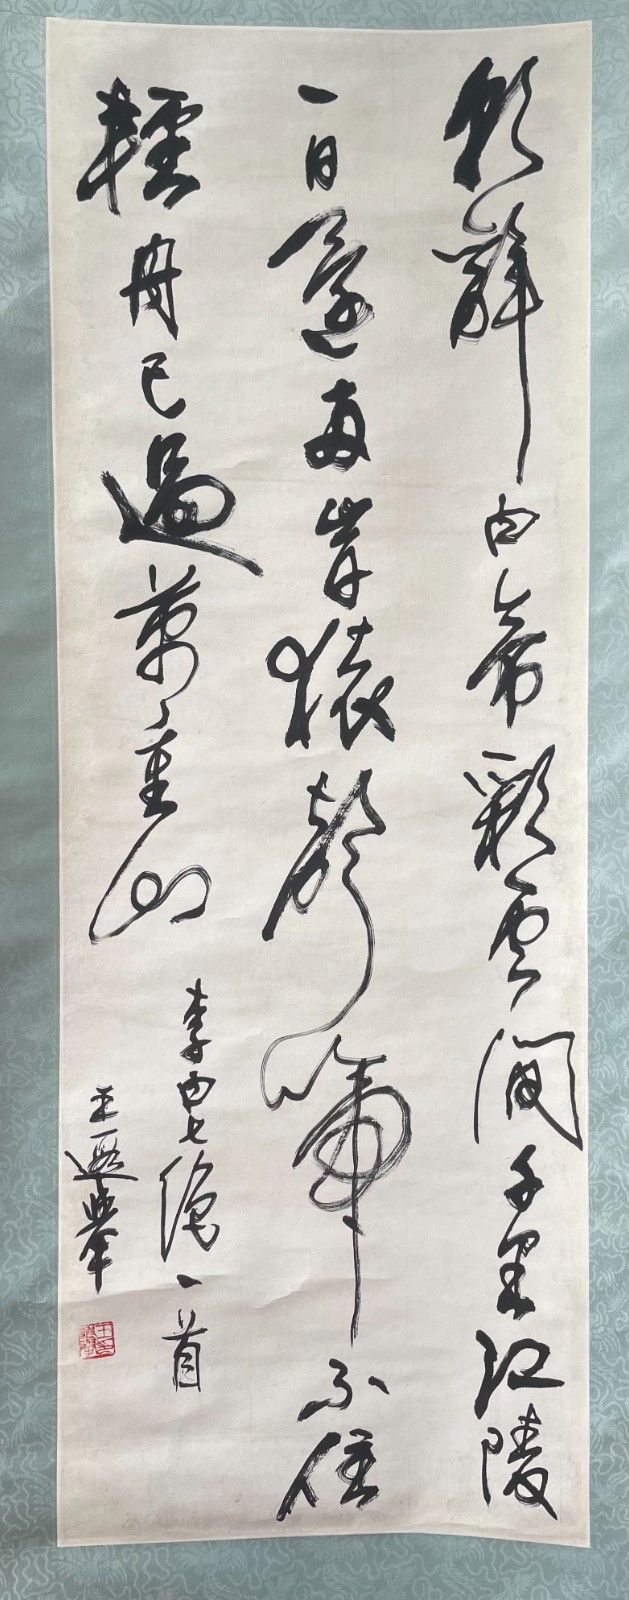 朝辞白帝彩云间千里江陵
一日還两岸猿聲啼不住
輕舟已過萬重山
李白七绝一首
王遐舉